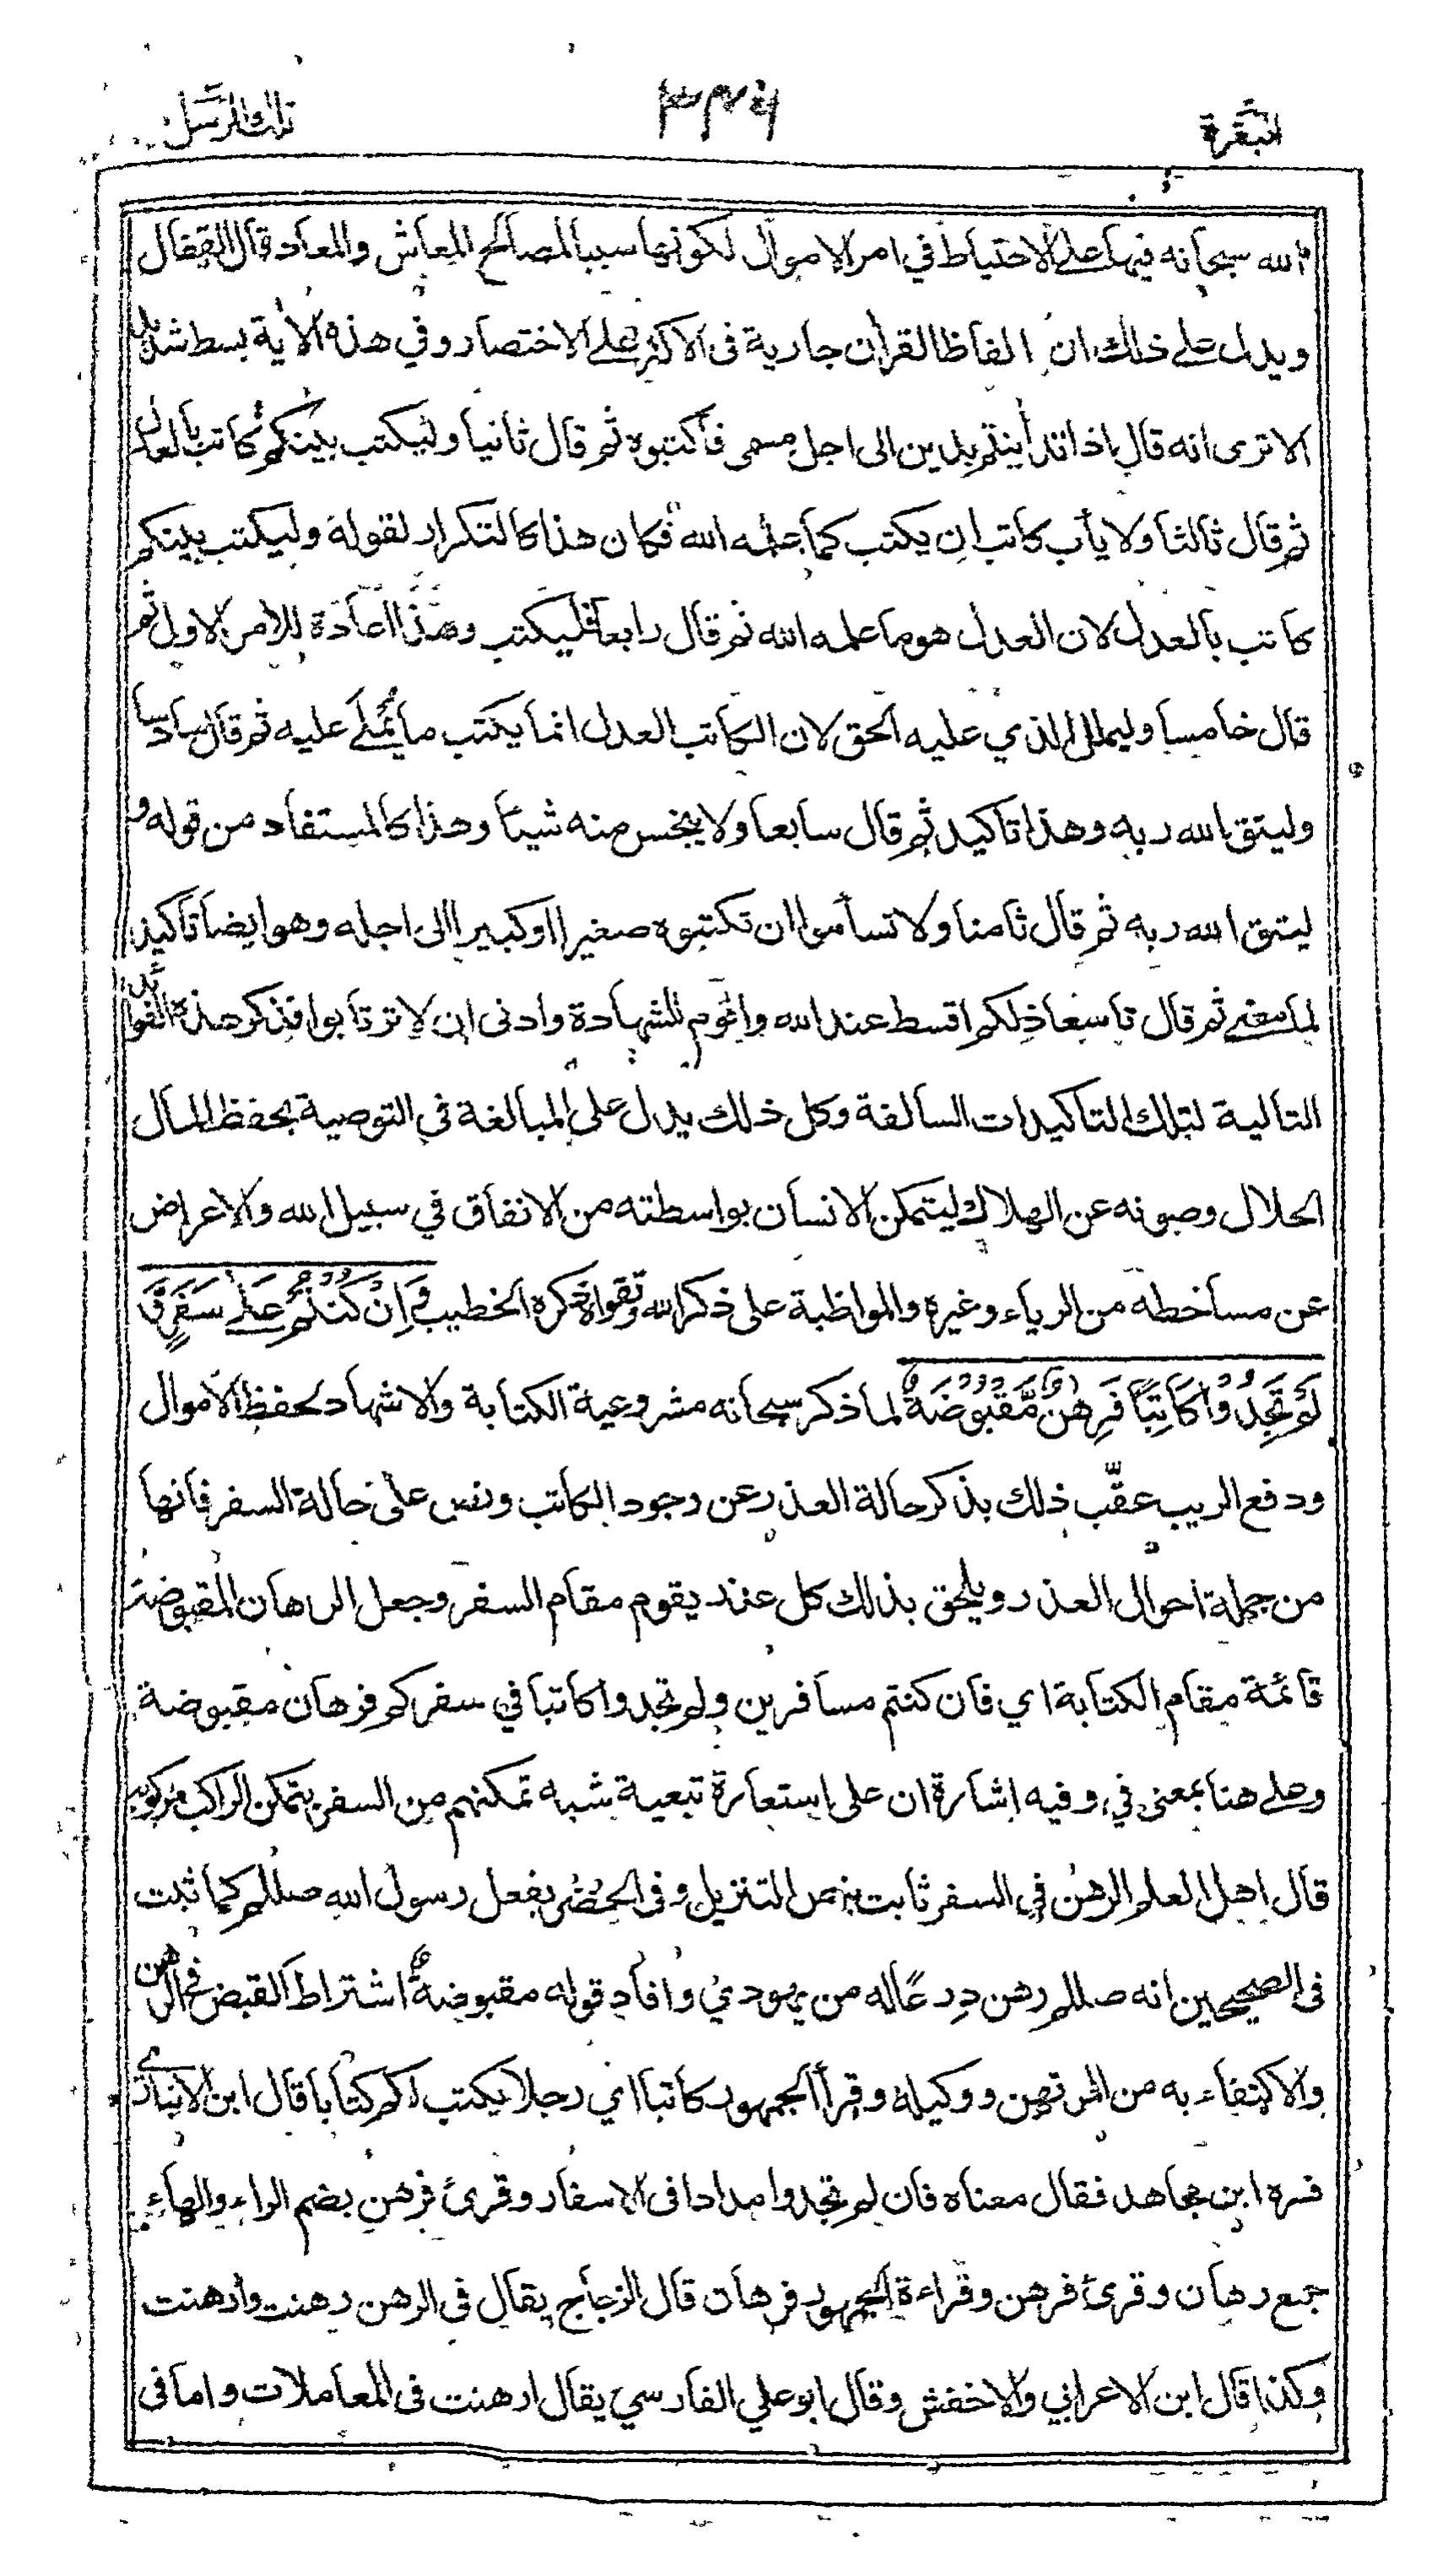 البقرة
٣٤٦
تلك الرسل
الله سبحانه فيها على الاحتياط في امر الاموال لكونها سببا لمصالح المعاش والمعاد قال القفال
ويدل على ذلك ان الفاظ القرأن جارية فى الاكثر على الاختصار وفي هذه الأية بسط شديد
الا ترى انه قال اذا تداينتم بدين الى اجل مسمى فاكتبوه ثم قال ثانيا وليكتب بينكم كاتب بالعدل
ثم قال ثالثا ولا يأب كاتب ان يكتب كما علمه الله فكان هذا كالتكرار لقوله وليكتب بينكم
كاتب بالعدل لان العدل هو ما علمه الله ثم قال رابعا فليكتب وهذا اعادة للامر الاول ثم
قال خامسا وليملل الذي عليه الحق لان الكاتب العدل انما يكتب ما يُملى عليه ثم قال سادسا
وليتق الله ربه وهذا تاكيد ثم قال سابعا ولا يبخس منه شيئا وهذا كالمستفاد من قوله و
ليتق الله ربه ثم قال ثامنا ولا تسأموا ان تكتبوه صغيرا او كبيرا الى اجله وهو ايضا تاكيد
لما مضى ثم قال تاسعا ذلكم اقسط عند الله واقوم للشهادة وادنى ان لا ترتابوا فذكر هذه الفوائد
التالية لتلك التاكيدات السالفة وكل ذلك يدل على المبالغة في التوصية بحفظ المال
الحلال وصونه عن الهلاك ليتمكن الانسان بواسطته من الانفاق في سبيل الله والاعراض
عن مساخطه من الرياء وغيره والمواظبة على ذكر الله وتقواه ذكره الخطيب وَاِنْ كُنْتُمْ عَلٰى سَفَرٍ وَّ
لَمْ تَجِدُوْا كَاتِبًا فَرِهٰنٌ مَّقْبُوْضَةٌ لما ذكر سبحانه مشروعية الكتابة والاشهاد لحفظ الاموال
ودفع الريب عقّب ذلك بذكر حالة العذر عن وجود الكاتب ونص على حالة السفر فانها
من جملة احوال العذر ويلحق بذلك كل عذر يقوم مقام السفر وجعل الرهان المقبوضة
قائمة مقام الكتابة اي فان كنتم مسافرين ولم تجدوا كاتبا في سفركم فرهان مقبوضة
وعلى هنا بمعنى في، وفيه إشارة ان على استعارة تبعية شبه تمكنهم من السفر بتمكن الراكب من مركوبه
قال اهل العلم الرهن في السفر ثابت بنص التنزيل وفى الحضر بفعل رسول الله صللم كما ثبت
فى الصحيحين انه صللم رهن دِرعًا له من يهودي وافاد قوله مقبوضةٌ اشتراط القبض في الرهن
والاكتفاء به من المرتهن ووكيله وقرأ الجمهور كاتبا اي رجلا يكتب لكم كتابا قال ابن الانباري
فسره ابن مجاهد فقال معناه فان لم تجدوا مدادا فى الاسفار وقرئ فرهن بضم الراء والهاء
جمع رهان وقرئ فرهن وقراءة الجمهور فرهان قال الزجاج يقال فى الرهن رهنت وأرهنت
وكذا قال ابن الاعرابي والاخفش وقال ابو علي الفارسي يقال ارهنت فى المعاملات واما فى